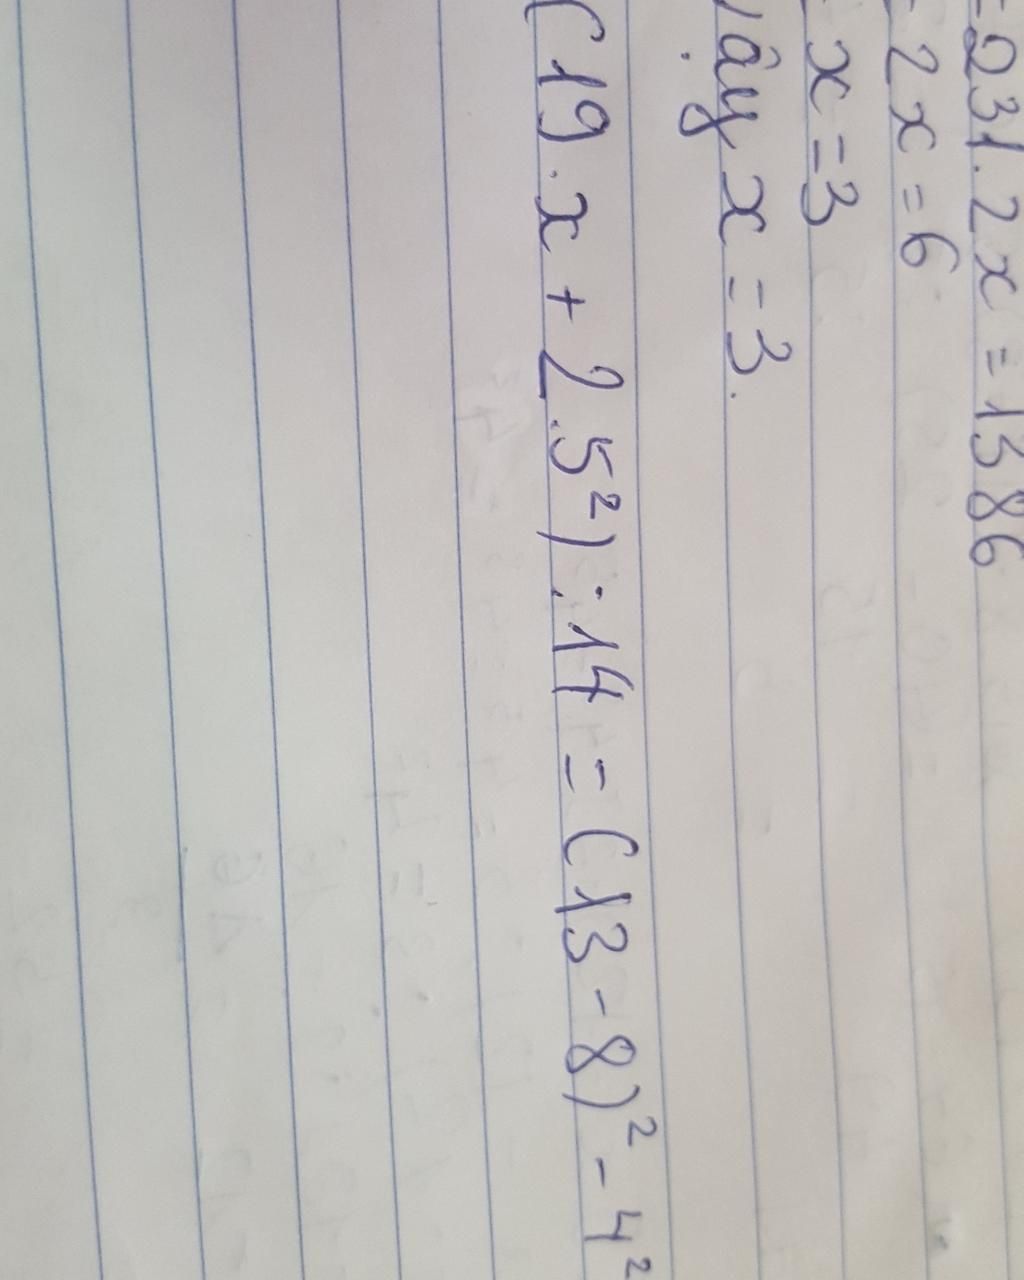 =231.2x = 1386
= 2x = 6
x = 3
Vậy x = 3.
(19.x + 2.5²) : 14 = (13 - 8)² - 4²